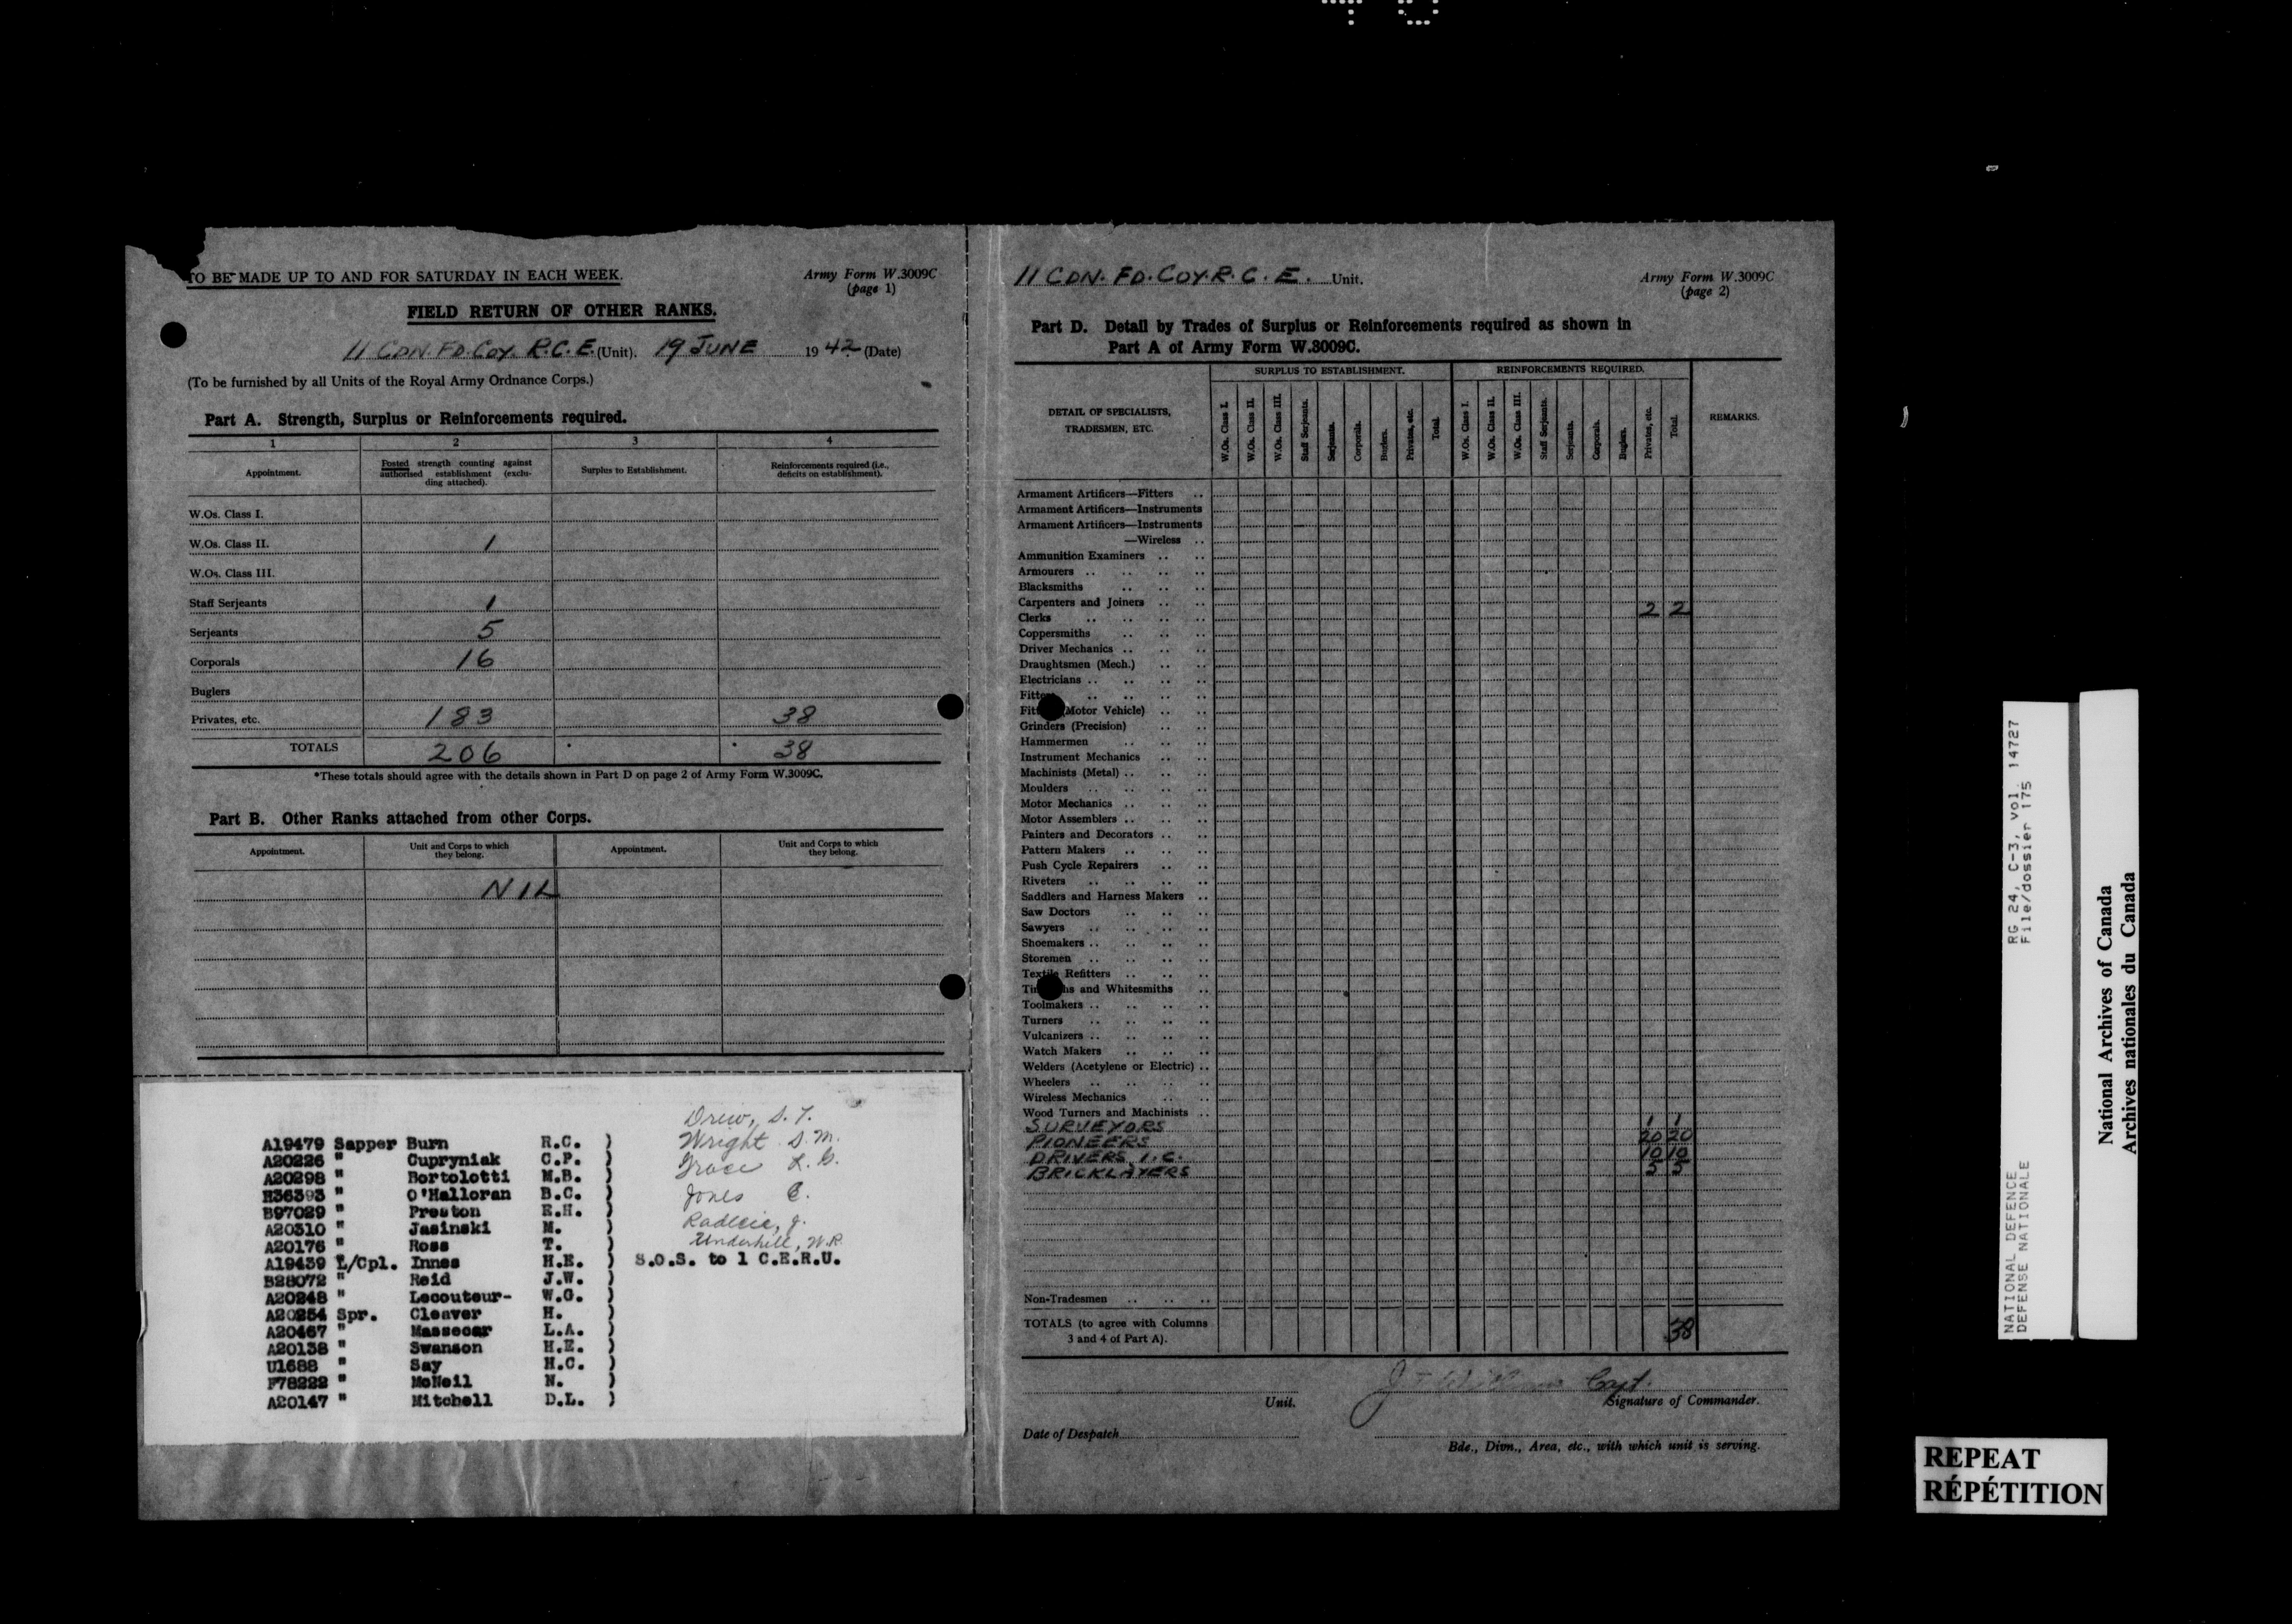 TO BE MADE UP TO AND FOR SATURDAY IN EACH WEEK.
Army Form W.3009C
(page 1)
FIELD RETURN OF OTHER RANKS.
11 CDN. FD. COY. R.C.E. (Unit). 19 JUNE 1942 (Date)
(To be furnished by all Units of the Royal Army Ordnance Corps.)
Part A. Strength, Surplus or Reinforcements required.
1 2 3 4
Appointment.
Posted strength counting against authorised establishment (excluding attached).
Surplus to Establishment.
Reinforcements required (i.e., deficits on establishment).
W.Os. Class I.
W.Os. Class II. 1
W.Os. Class III.
Staff Serjeants 1
Serjeants 5
Corporals 16
Buglers
Privates, etc. 183 38
TOTALS 206 38
*These totals should agree with the details shown in Part D on page 2 of Army Form W.3009C.
Part B. Other Ranks attached from other Corps.
Appointment. Unit and Corps to which they belong. Appointment. Unit and Corps to which they belong.
NIL
Drew, S.T.
Wright S.M.
Grace L.G.
Jones C.
J.
Underhill, W.R.
A19479 Sapper Burn R.C. )
A20226 " Cupryniak C.P. )
A20298 " Bortolotti M.B. )
H36393 " O'Halloran B.C. )
B97029 " Preston R.H. )
A20310 " Jasinski M. )
A20176 " Ross T. )
A19439 L/Cpl. Innes H.E. ) S.O.S. to 1 C.E.R.U.
B28072 " Reid J.W. )
A20248 " Lecouteur- W.G. )
A20254 Spr. Cleaver H. )
A20467 " Massecar L.A. )
A20138 " Swanson H.E. )
U1688 " Say H.C. )
F78222 " McNeil N. )
A20147 " Mitchell D.L. )
11 CDN. FD. COY. R.C.E. Unit.
Army Form W.3009C
(page 2)
Part D. Detail by Trades of Surplus or Reinforcements required as shown in
Part A of Army Form W.3009C.
DETAIL OF SPECIALISTS, TRADESMEN, ETC.
SURPLUS TO ESTABLISHMENT.
REINFORCEMENTS REQUIRED.
REMARKS.
W.Os. Class I. W.Os. Class II. W.Os. Class III. Staff Serjeants. Serjeants. Corporals. Buglers. Privates, etc. Total.
W.Os. Class I. W.Os. Class II. W.Os. Class III. Staff Serjeants. Serjeants. Corporals. Buglers. Privates, etc. Total.
Armament Artificers—Fitters
Armament Artificers—Instruments
Armament Artificers—Instruments
—Wireless
Ammunition Examiners
Armourers
Blacksmiths
Carpenters and Joiners 2 2
Clerks
Coppersmiths
Driver Mechanics
Draughtsmen (Mech.)
Electricians
Fitters
Fitters (Motor Vehicle)
Grinders (Precision)
Hammermen
Instrument Mechanics
Machinists (Metal)
Moulders
Motor Mechanics
Motor Assemblers
Painters and Decorators
Pattern Makers
Push Cycle Repairers
Riveters
Saddlers and Harness Makers
Saw Doctors
Sawyers
Shoemakers
Storemen
Textile Refitters
Tinsmiths and Whitesmiths
Toolmakers
Turners
Vulcanizers
Watch Makers
Welders (Acetylene or Electric)
Wheelers
Wireless Mechanics
Wood Turners and Machinists
SURVEYORS 1 1
PIONEERS 20 20
DRIVERS I.C. 10 10
BRICKLAYERS 5 5
Non-Tradesmen
TOTALS (to agree with Columns 3 and 4 of Part A). 38
Capt.
Unit.
Signature of Commander.
Date of Despatch
Bde., Divn., Area, etc., with which unit is serving.
NATIONAL DEFENCE RG 24, C-3, vol. 14727
DEFENSE NATIONALE File/dossier 175
National Archives of Canada
Archives nationales du Canada
REPEAT
RÉPÉTITION